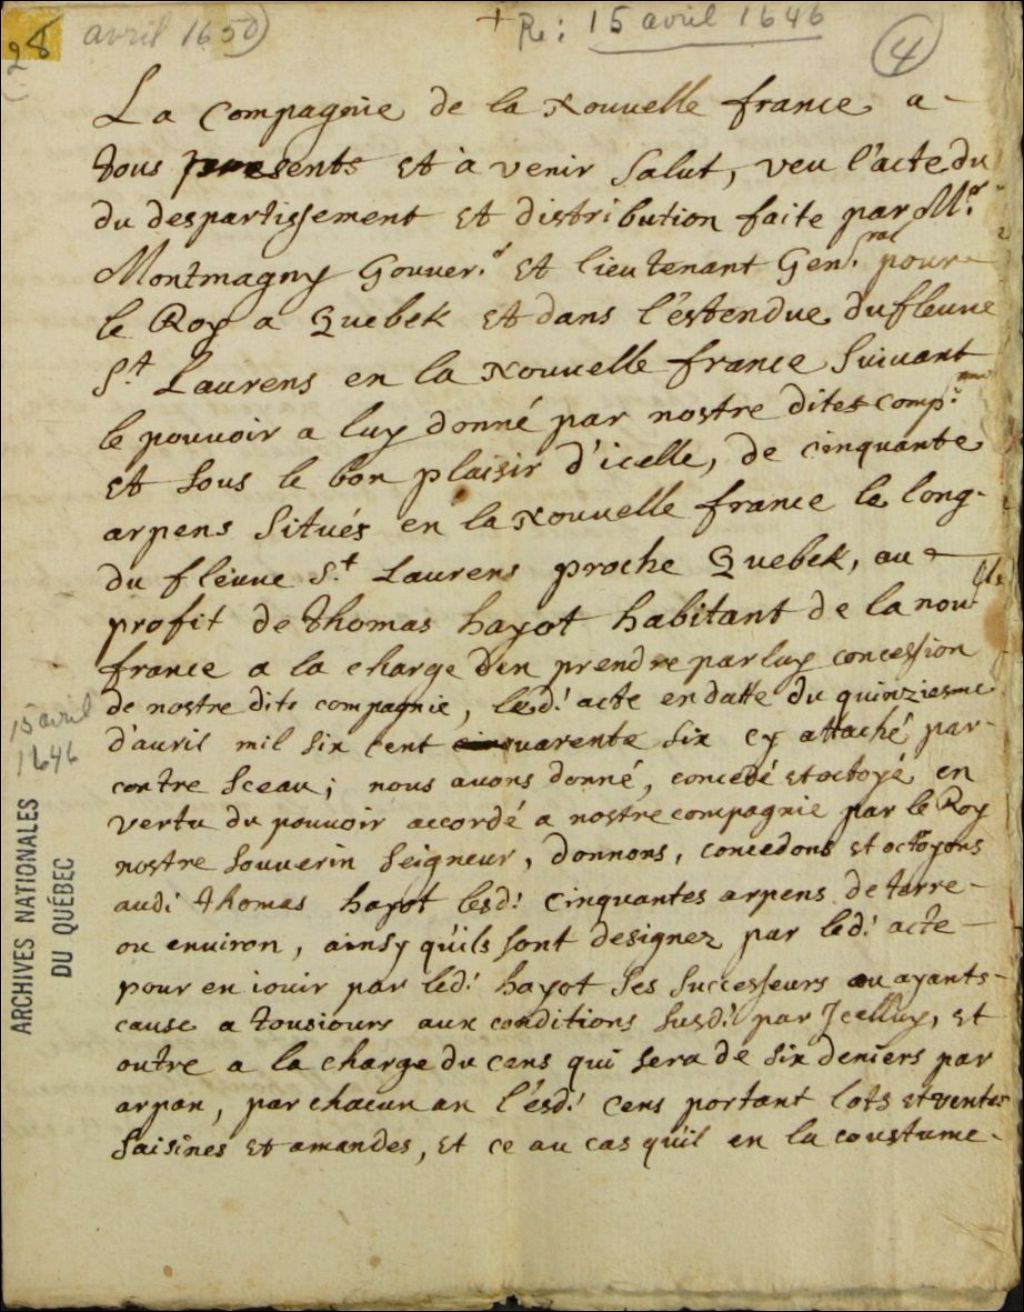 28 avril 1650
+ Re: 15 avril 1646
4
La Compagnie de la Nouuelle france a
tous presents et à venir Salut, veu l'acte du
du despartissement et distribution faite par Mr.
Montmagny Gouuer.r et lieutenant Gen.ral pour
le Roy a Quebek et dans l'estendue du fleuue
St. Laurens en la Nouuelle france Suiuant
le pouuoir a luy donné par nostre dites comp.
et sous le bon plaisir d'icelle, de cinquante
arpens Situés en la Nouuelle france le long
du fleuue St. Laurens proche Quebek, au
profit de thomas hayot habitant de la nou.lle
france a la charge d'en prendre par luy concession
de nostre dite compagnie, led. acte en datte du quinziesme
d'auril mil six cent quarente six cy attaché par
contre Sceau; nous auons donné, concedé et octoyé en
vertu du pouuoir accordé a nostre compagnie par le Roy
nostre Souuerin Seigneur, donnons, concedons et octoyons
audi thomas hayot lesd. Cinquantes arpens de terre
ou environ, ainsy qu'ils sont designez par led. acte
pour en iouir par led. hayot Ses Successeurs ou ayants
cause a tousiours aux conditions Susd. par Jcelluy, et
outre a la charge du cens qui Sera de Six deniers par
arpan, par chacun an l'esd. Cens portant lots et ventes
Saisines et amandes, et ce au cas qu'il en la coustume
15 avril
1646
ARCHIVES NATIONALES
DU QUÉBEC